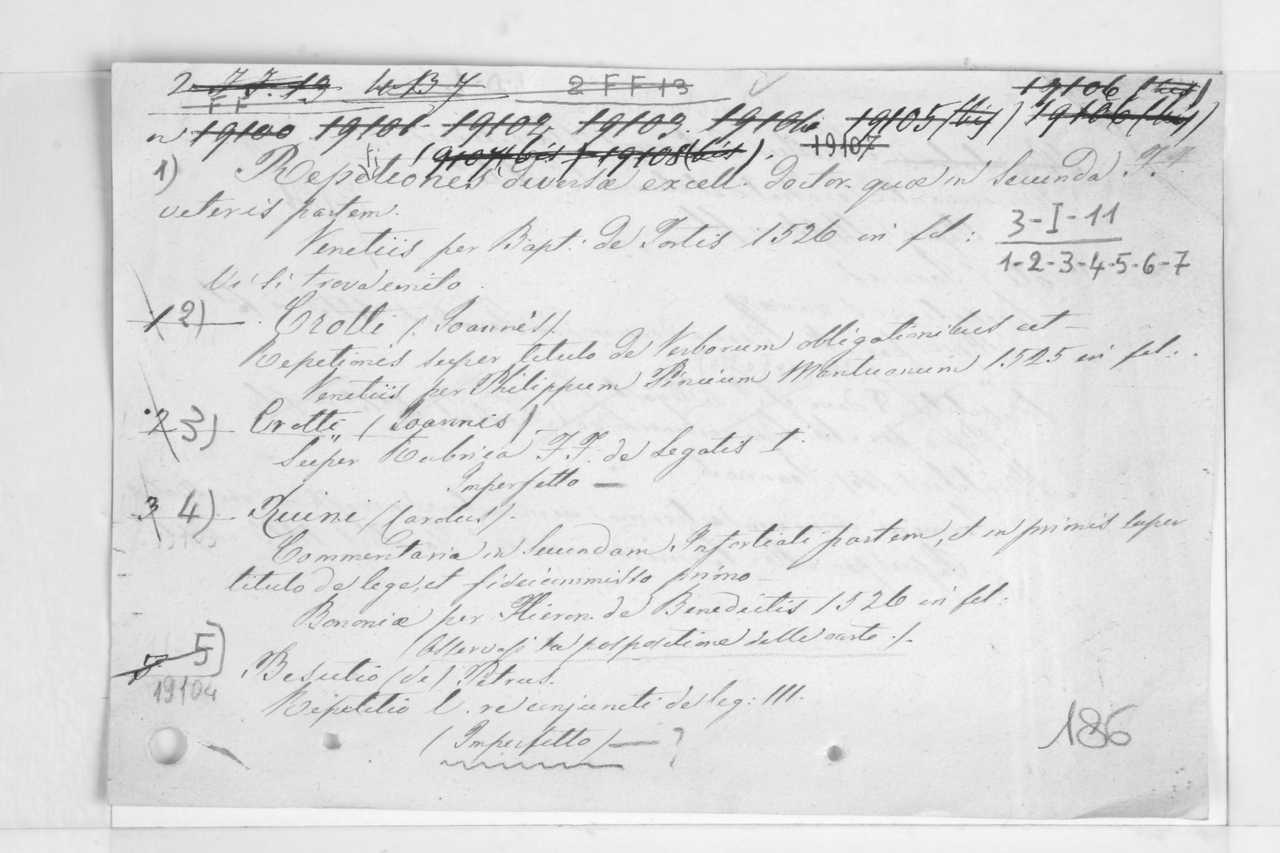 2 7 7. 19 4 B 7 2 FF 13 19106 (bis)
FF
n 19100 19101 19102 19103. 19104 19105 (bis) 19106 (bis)
(19107 (bis) 19108 (bis)). 19107
1) Repetiones diversæ excell. doctor. quæ in secunda F.F.
ti
veteris partem.
Venetiis per Bapt: de Tortis 1526 in fol: 3-I-11
Vi si trova unito. 1-2-3-4-5-6-7
1 2) Crotti (Joannis).
Repetionis super titulo de Verborum obligationibus
Venetiis per Philippum Pincium Mantuanum 1525 in fol:.
2 3) Crotti (Joannis)
Super Rubrica F.F. de Legatis I:
Imperfetto —
3 4) Ruini (Carolus).
Commentaria in secundam Infortiati partem, et in primis super
titulo de lege, et fideicommisso primo
Bononiæ per Hieron. de Benedictis 1526 in fol:
(Osservasi la pospositione delle carte.).
5) Besutio (de) Petrus.
19104
Repetitio l. re conjuncti de leg: III.
(Imperfetto) — ?
186